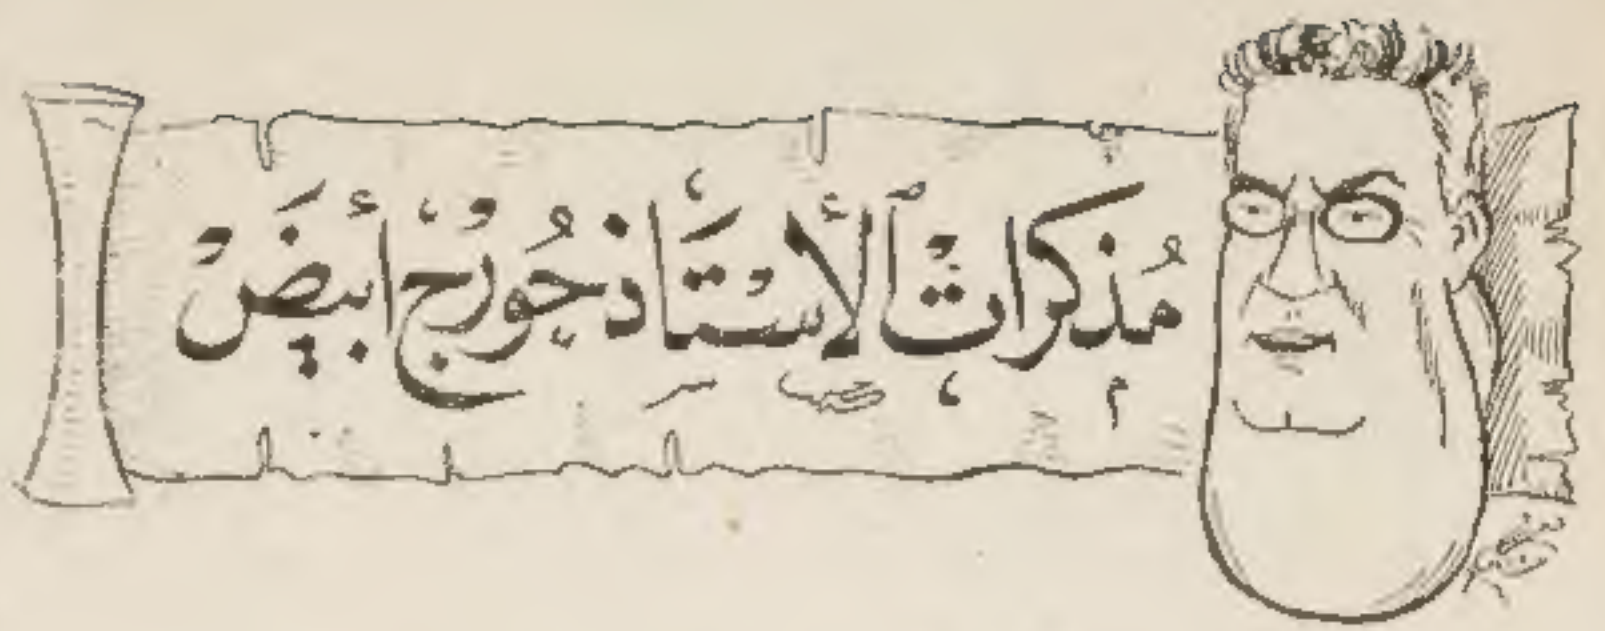 مُذكراتْ الأستَاذ جُورْج أبيَضْ